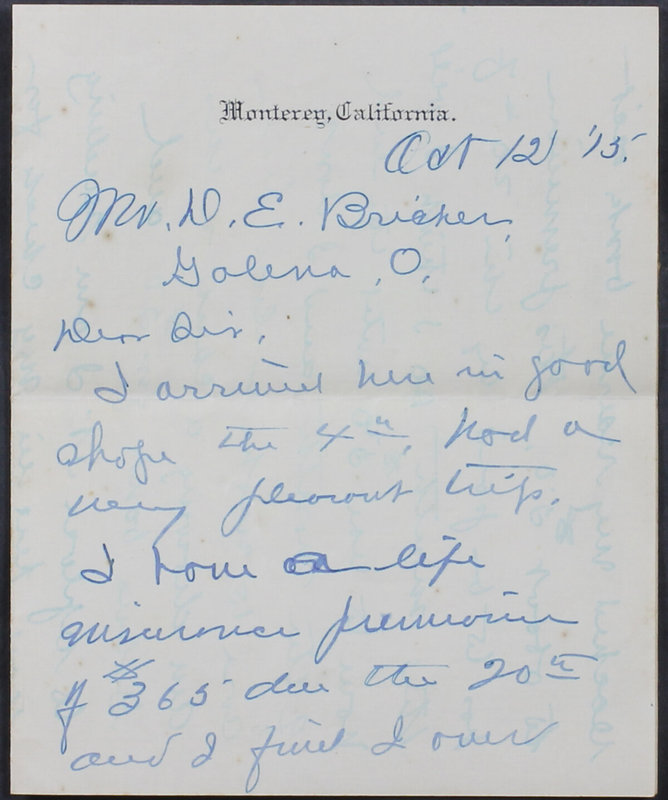 Monterey, California.
Oct 12 '15.
Mr. D. E. Bricker,
Galena, O.
Dear Sir,
I arrived here in good
shape the 4th. Had a
very pleasant trip.
I have a life
insurance premium
of $365 due the 20th
and I find I over